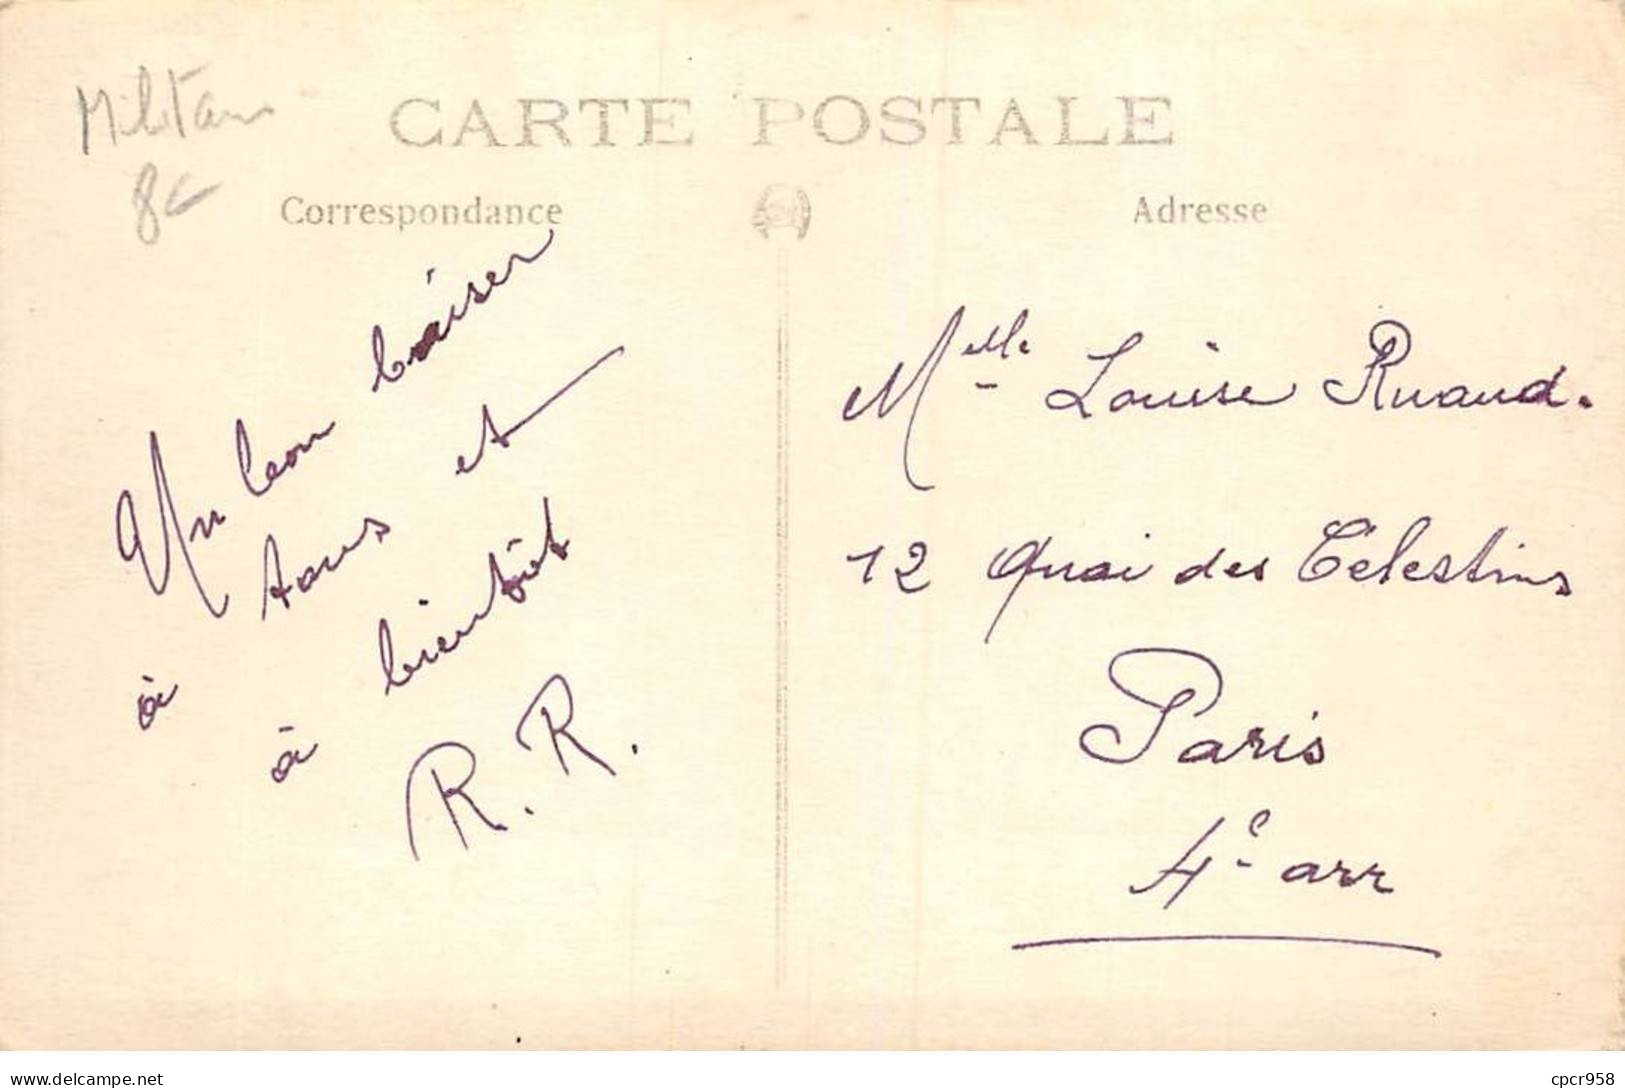 Militaire
8€
CARTE POSTALE
Correspondance
Adresse
Un bon baiser
à tous et
à bientôt
R. R.
Melle Louise Ruaud.
12 Quai des Célestins
Paris
4e arr
delcampe.net
cpcr958